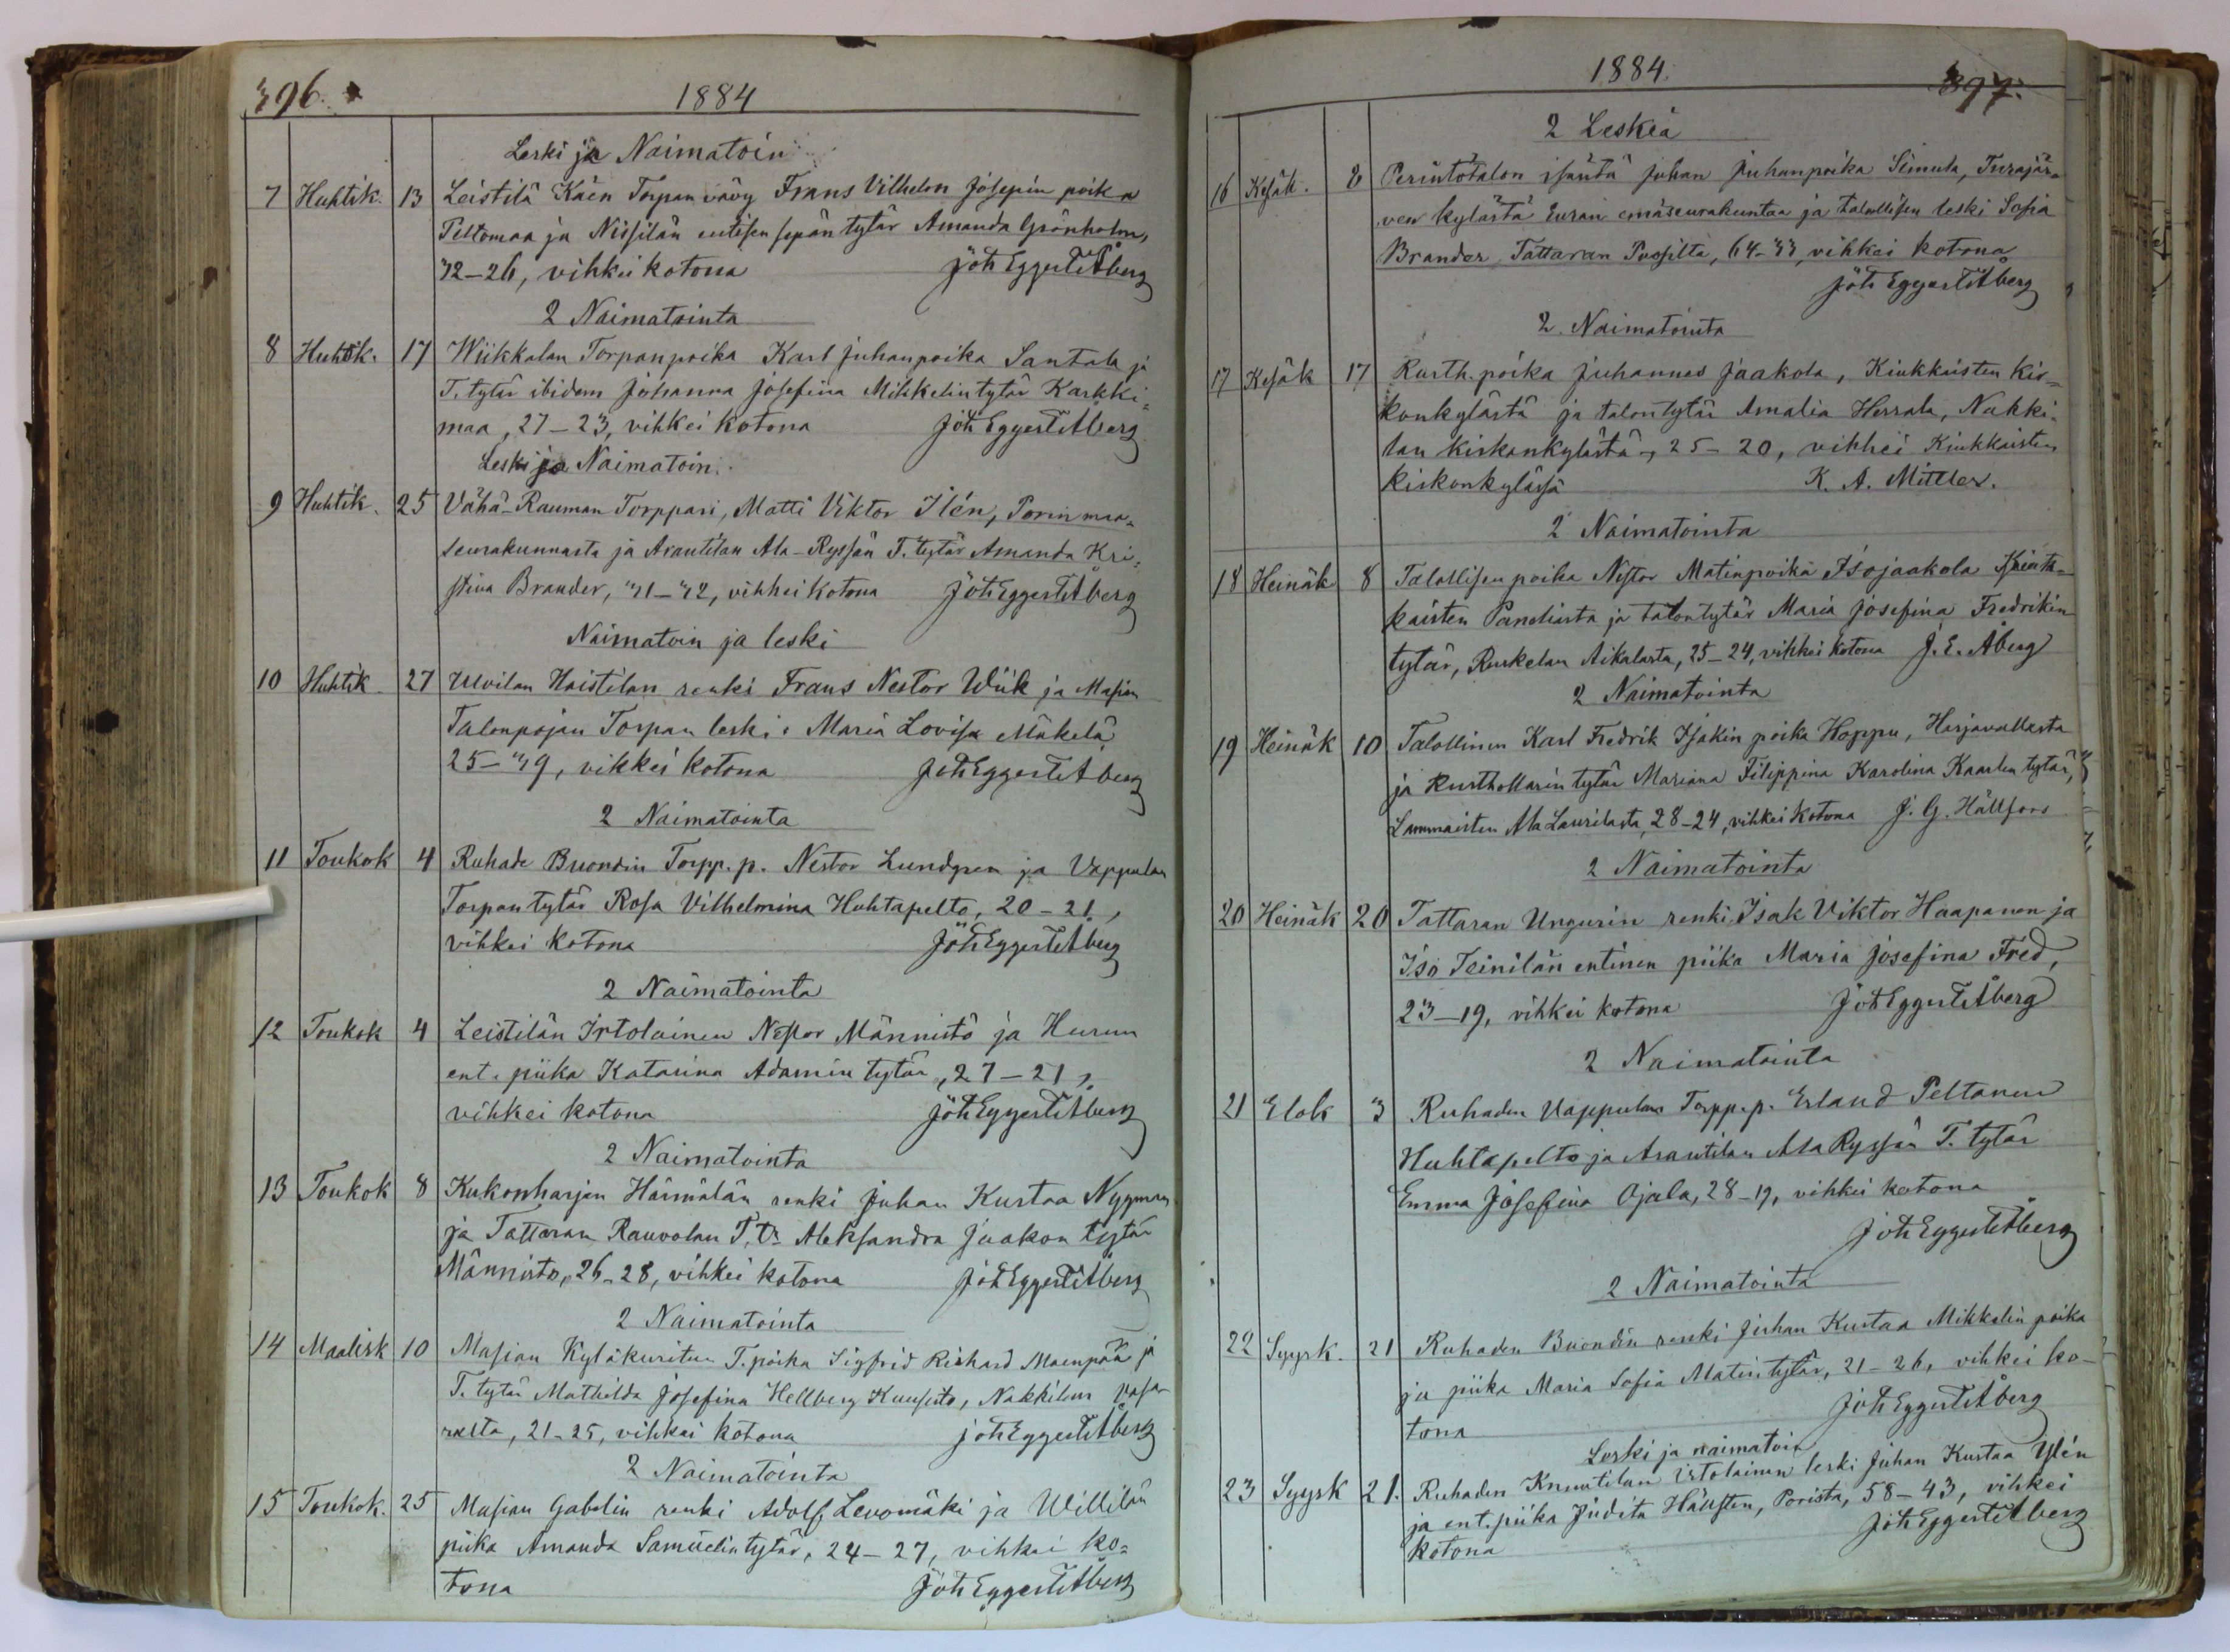 396.
1884
Leski ja Naimatoin
7 Huhtik. 13 Leistilä Käen Torpan vävy Frans Vilhelm Josepin poika
Peltomaa ja Nissilän entisen sepän tytär Amanda Grönholm,
32–26, vihkei kotona Joh Eggert Åberg
2 Naimatointa
8 Huhtik. 17 Wiikkalan Torpanpoika Karl Juhanpoika Santala ja
T. tytär ibidem Johanna Josefina Mikkelintytär Karkki=
maa, 27–23, vihkei kotona Joh Eggert Åberg
Leski ja Naimatoin.
9 Huhtik. 25 Vähä-Rauman Torppari, Matti Viktor Ilén, Porin maa=
seurakunnasta ja Arantilan Ala-Ryssän T. tytär Amanda Kri=
stina Brander, 31–32, vihkei kotona Joh Eggert Åberg
Naimatoin ja leski
10 Huhtik 27 Ulvilan Haistilan renki Frans Nestor Wiik ja Masian
Talonpojan Torpan leski Maria Lovisa Mäkelä
25–39, vihkei kotona Joh Eggert Åberg
2 Naimatointa
11 Toukok 4 Ruhade Buondin Torpp. p. Nestor Lundgren ja Vappulan
Torpan tytär Rosa Vilhelmina Huhtapelto, 20–21,
vihkei kotona Joh Eggert Åberg
2 Naimatointa
12 Toukok 4 Leistilän Irtolainen Nestor Männistö ja Hurun
ent. piika Katarina Adamin tytär, 27–21,
vihkei kotona Joh Eggert Åberg
2 Naimatointa
13 Toukok 8 Kukonharjan Härmälän renki Juhan Kustaa Nygman
ja Tattaran Rauvolan T. tr Aleksandra Jaakon tytär
Männistö, 26–28, vihkei kotona Joh Eggert Åberg
2 Naimatointa
14 Maalisk 10 Masian Kyläkuritun T. poika Sigfrid Rishard Maenpää ja
T. tytär Mathilda Josefina Hellberg Kuusisto, Nakkilan Vasa=
ralta, 21–25, vihkei kotona Joh Eggert Åberg
2 Naimatointa
15 Toukok. 25 Masian Gabelin renki Adolf Levomäki ja Willilän
piika Amanda Samuelintytär, 24–27, vihkei ko=
tona Joh Eggert Åberg
1884
397.
2 Leskiä
16 Kesäk. 8 Perintötalon isäntä Juhan Juhanpoika Simula, Turajär=
ven kylästä Euran emäseurakuntaa ja talollisen leski Sofia
Brander, Tattaran Pussilta, 64–33, vihkei kotona
Joh Eggert Åberg
2 Naimatointa
17 Kesäk 17 Rusth. poika Juhannes Jaakola, Kiukkaisten kir=
konkylästä ja talontytär Amalia Herrala, Nakki=
lan kirkonkylästä, 25–20, vihkei Kiukkaisten
kirkonkylässä K. A. Mittler.
2 Naimatointa
18 Heinäk 8 Talollisen poika Nestor Matinpoika Isojaakola Kiuk=
kaisten Paneliasta ja talontytär Maria Josefina Fredrikin
tytär, Ruskelan Aikalasta, 25–24, vihkei kotona J. E. Åberg
2 Naimatointa
19 Heinäk 10 Talollinen Karl Fredrik Isakin poika Hoppu, Harjavallasta
ja Rusthollarin tytär Mariana Filippina Karolina Kaarlen tytär,
Lammaisten Ala Laurilasta, 28–24, vihkei kotona J. G. Hällfors
2 Naimatointa
20 Heinäk 20 Tattaran Ungurin renki Isak Viktor Haapanen ja
Iso Teinilän entinen piika Maria Josefina Fred,
23–19, vihkei kotona Joh Eggert Åberg
2 Naimatointa
21 Elok 3 Ruhaden Vappulan Torpp. p. Erland Peltonen
Huhtapelto ja Arantilan Ala Ryssän T. tytär
Emma Josefina Ojala, 28–19, vihkei kotona
Joh Eggert Åberg
2 Naimatointa
22 Syysk. 21 Ruhaden Buondin renki Juhan Kustaa Mikkelin poika
ja piika Maria Sofia Matintytär, 21–26, vihkei ko=
tona Joh Eggert Åberg
Leski ja naimatoin
23 Syysk 21. Ruhaden Knuutilan irtolainen leski Juhan Kustaa Ylén
ja ent. piika Judita Hällsten, Porista, 58–43, vihkei
kotona Joh Eggert Åberg